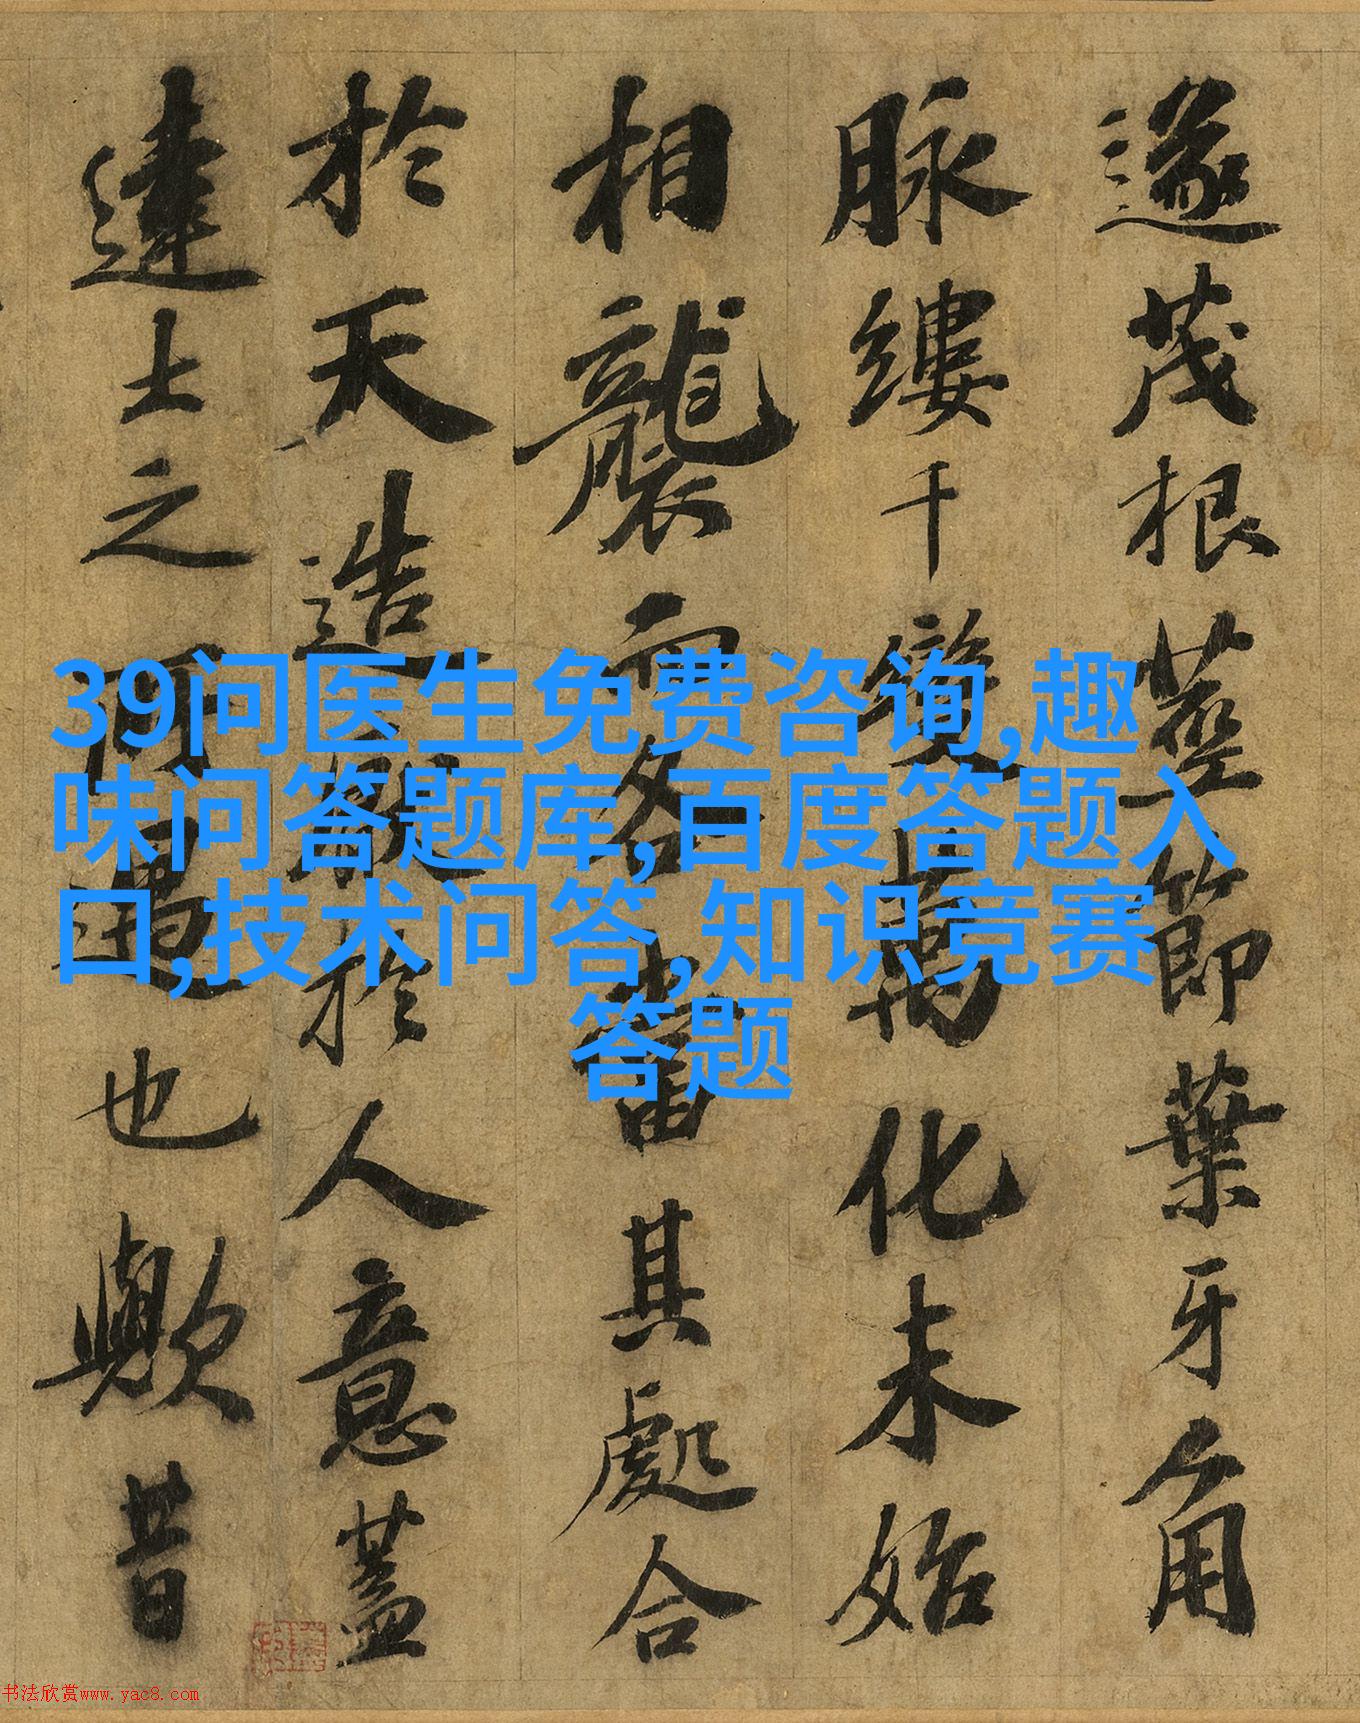 遂茂根莖節葉牙角
脉縷千變萬化未始
相襲而各當其處合
於天造於人意蓋
達士之所也歟昔
39问医生免费咨询,趣
味问答题库,百度答题入
口,技术问答,知识竞赛
答题
书法欣赏www.yac8.com